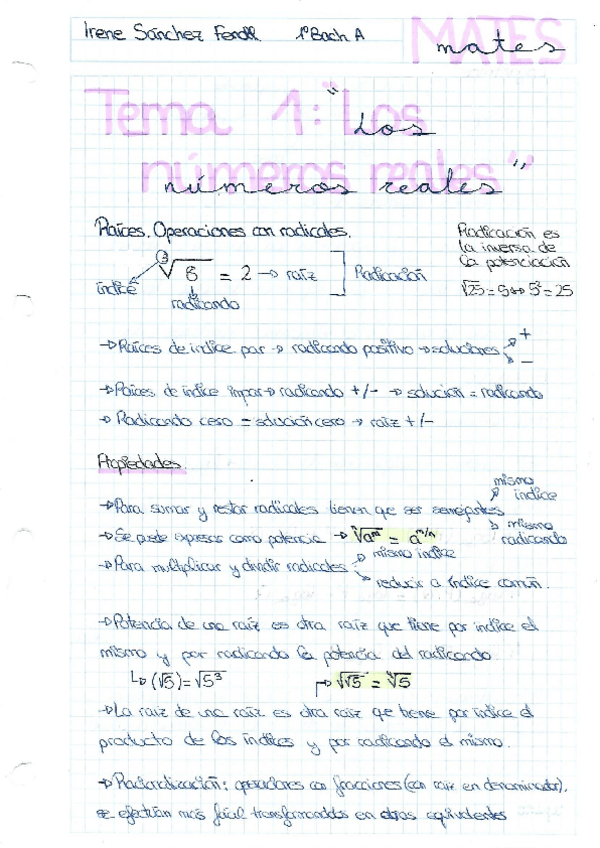 Irene Sánchez 1º Bach A
MATES
mates
Tema 1: "Los
números reales"
Raíces. Operaciones con radicales.
Radicación es
la inversa de
la potenciación
√25 = 5 ↔ 5² = 25
∛8 = 2 → raíz
Radicación
índice
radicando
→ Raíces de índice par → radicando positivo → soluciones + -
→ Raíces de índice impar → radicando +/- → solución = radicando
→ Radicando cero = solución cero → raíz +/-
Propiedades.
→ Para sumar y restar radicales tienen que ser semejantes
mismo
índice
mismo
radicando
→ Se puede expresar como potencia → ⁿ√aᵐ = a^m/n
→ Para multiplicar y dividir radicales
mismo índice
reducir a índice común.
→ Potencia de una raíz es otra raíz que tiene por índice el
mismo y por radicando la potencia del radicando.
(√5) = √5³
→ √√5 = √5
→ La raíz de una raíz es otra raíz que tiene por índice el
producto de los índices y por radicando el mismo.
→ Racionalización: operaciones con fracciones (con raíz en denominador),
se efectúan más fácil transformandolas en otras equivalentes